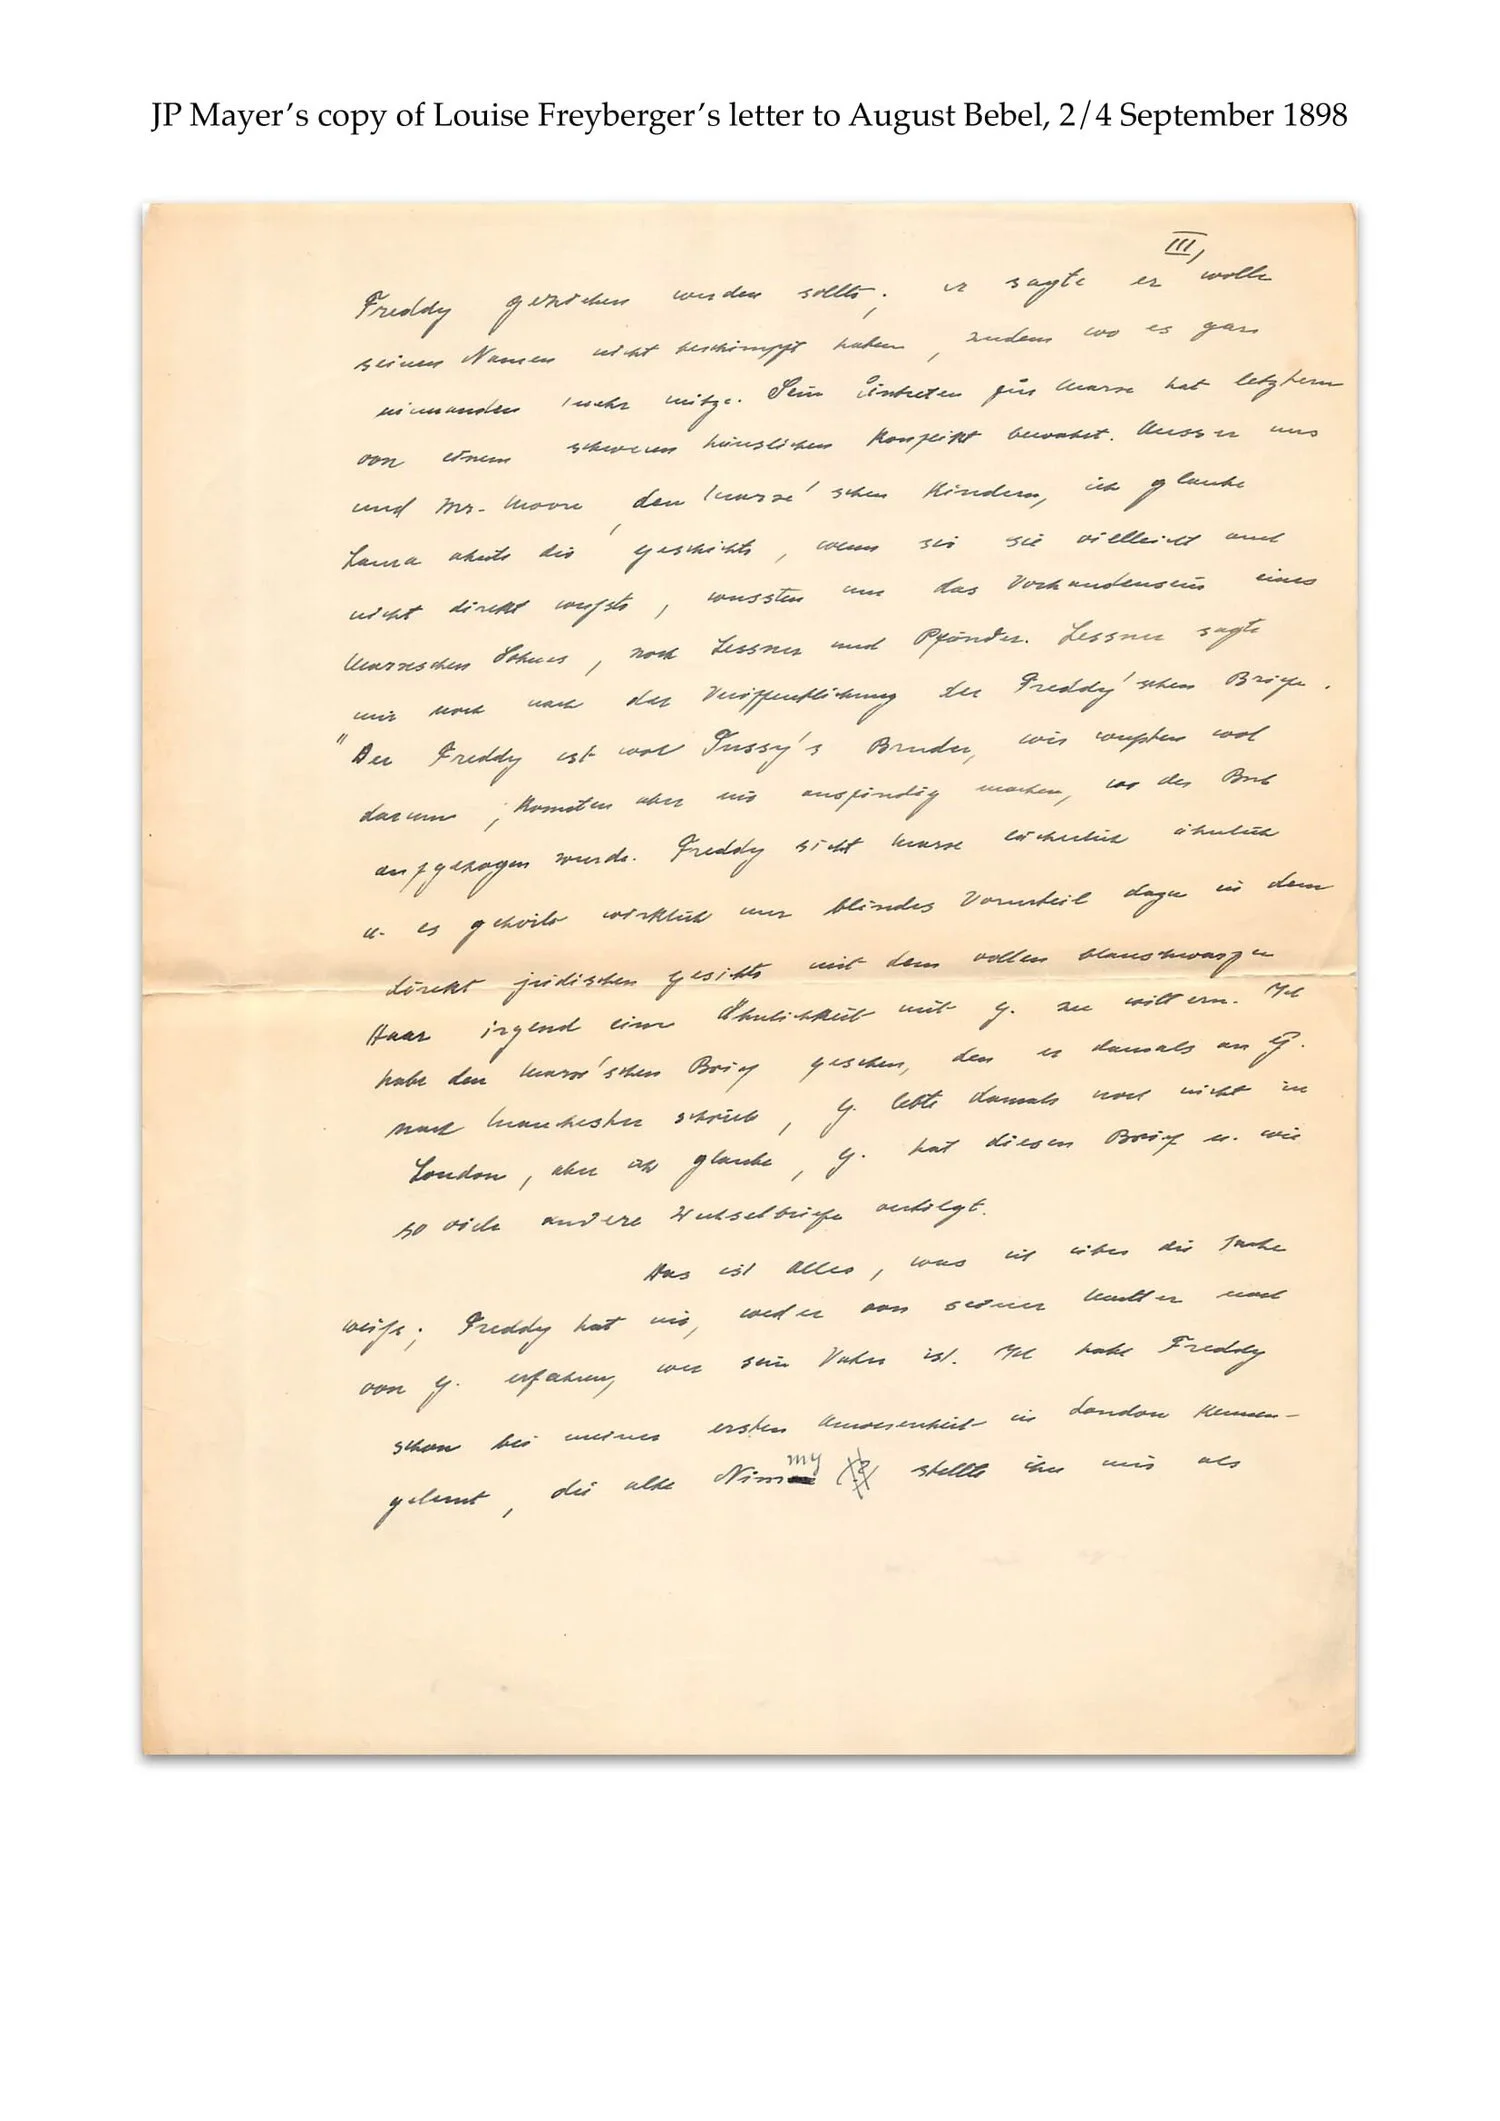 JP Mayer's copy of Louise Freyberger's letter to August Bebel, 2/4 September 1898
III,
Freddy geziehen werden sollte; er sagte er wolle
seinen Namen nicht beschimpft haben, zudem wo es gar
niemanden mehr nütze. Sein Eintreten für Marx hat letztern
von einem schweren häuslichen Konflikt bewahrt. Ausser uns
und Mr. Moore, den Marx'schen Kindern, ich glaube
Laura ahnte die Geschichte, wenn sie sie vielleicht auch
nicht direkt wußte, wussten um das Vorhandensein eines
Marxschen Sohnes, noch Lessner und Pfänder. Lessner sagte
mir noch nach der Veröffentlichung der Freddy'schen Briefe.
"Der Freddy ist wol Tussy's Bruder, wir wußten wol
darum, konnten aber nie ausfindig machen, wo der Bub
aufgezogen wurde. Freddy sieht Marx lächerlich ähnlich
u. es gehörte wirklich nur blindes Vorurteil dazu in dem
direkt jüdischen Gesichte mit dem vollen blauschwarzen
Haar irgend eine Ähnlichkeit mit G. zu wittern. Ich
habe den Marx'schen Brief gesehen, den er damals an G.
nach Manchester schrieb, G. lebte damals noch nicht in
London, aber ich glaube, G. hat diesen Brief u. wie
so viele andere Wechselbriefe vertilgt.
Das ist Alles, was ich über die Sache
weiß; Freddy hat nie, weder von seiner Mutter noch
von G. erfahren, wer sein Vater ist. Ich habe Freddy
schon bei meiner ersten Anwesenheit in London kennen-
gelernt, die alte Nimmy (?) stellte ihn mir als